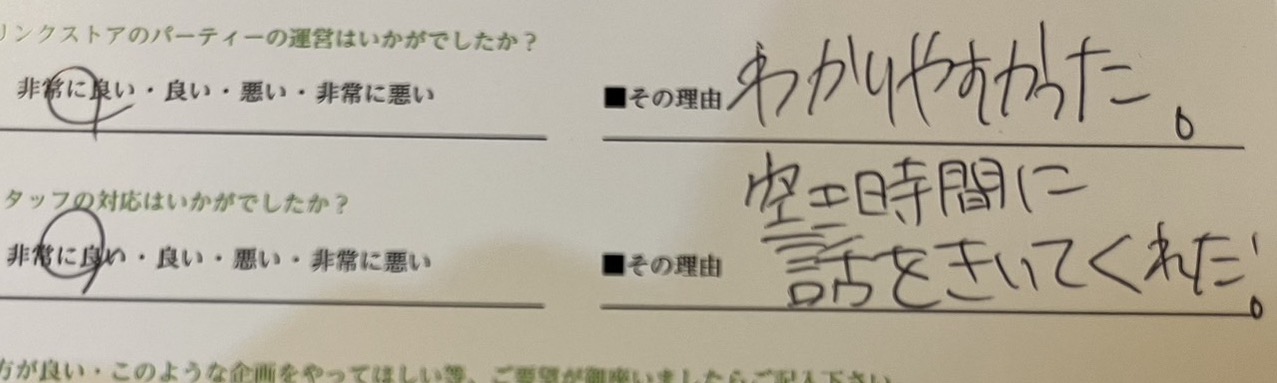 リンクストアのパーティーの運営はいかがでしたか？
非常に良い・良い・悪い・非常に悪い
■その理由 わかりやすかった。
タッフの対応はいかがでしたか？
非常に良い・良い・悪い・非常に悪い
■その理由 空ニ時間に
話をきいてくれた。
方が良い・このような企画をやってほしい等、ご要望が御座いましたらご記入下さい